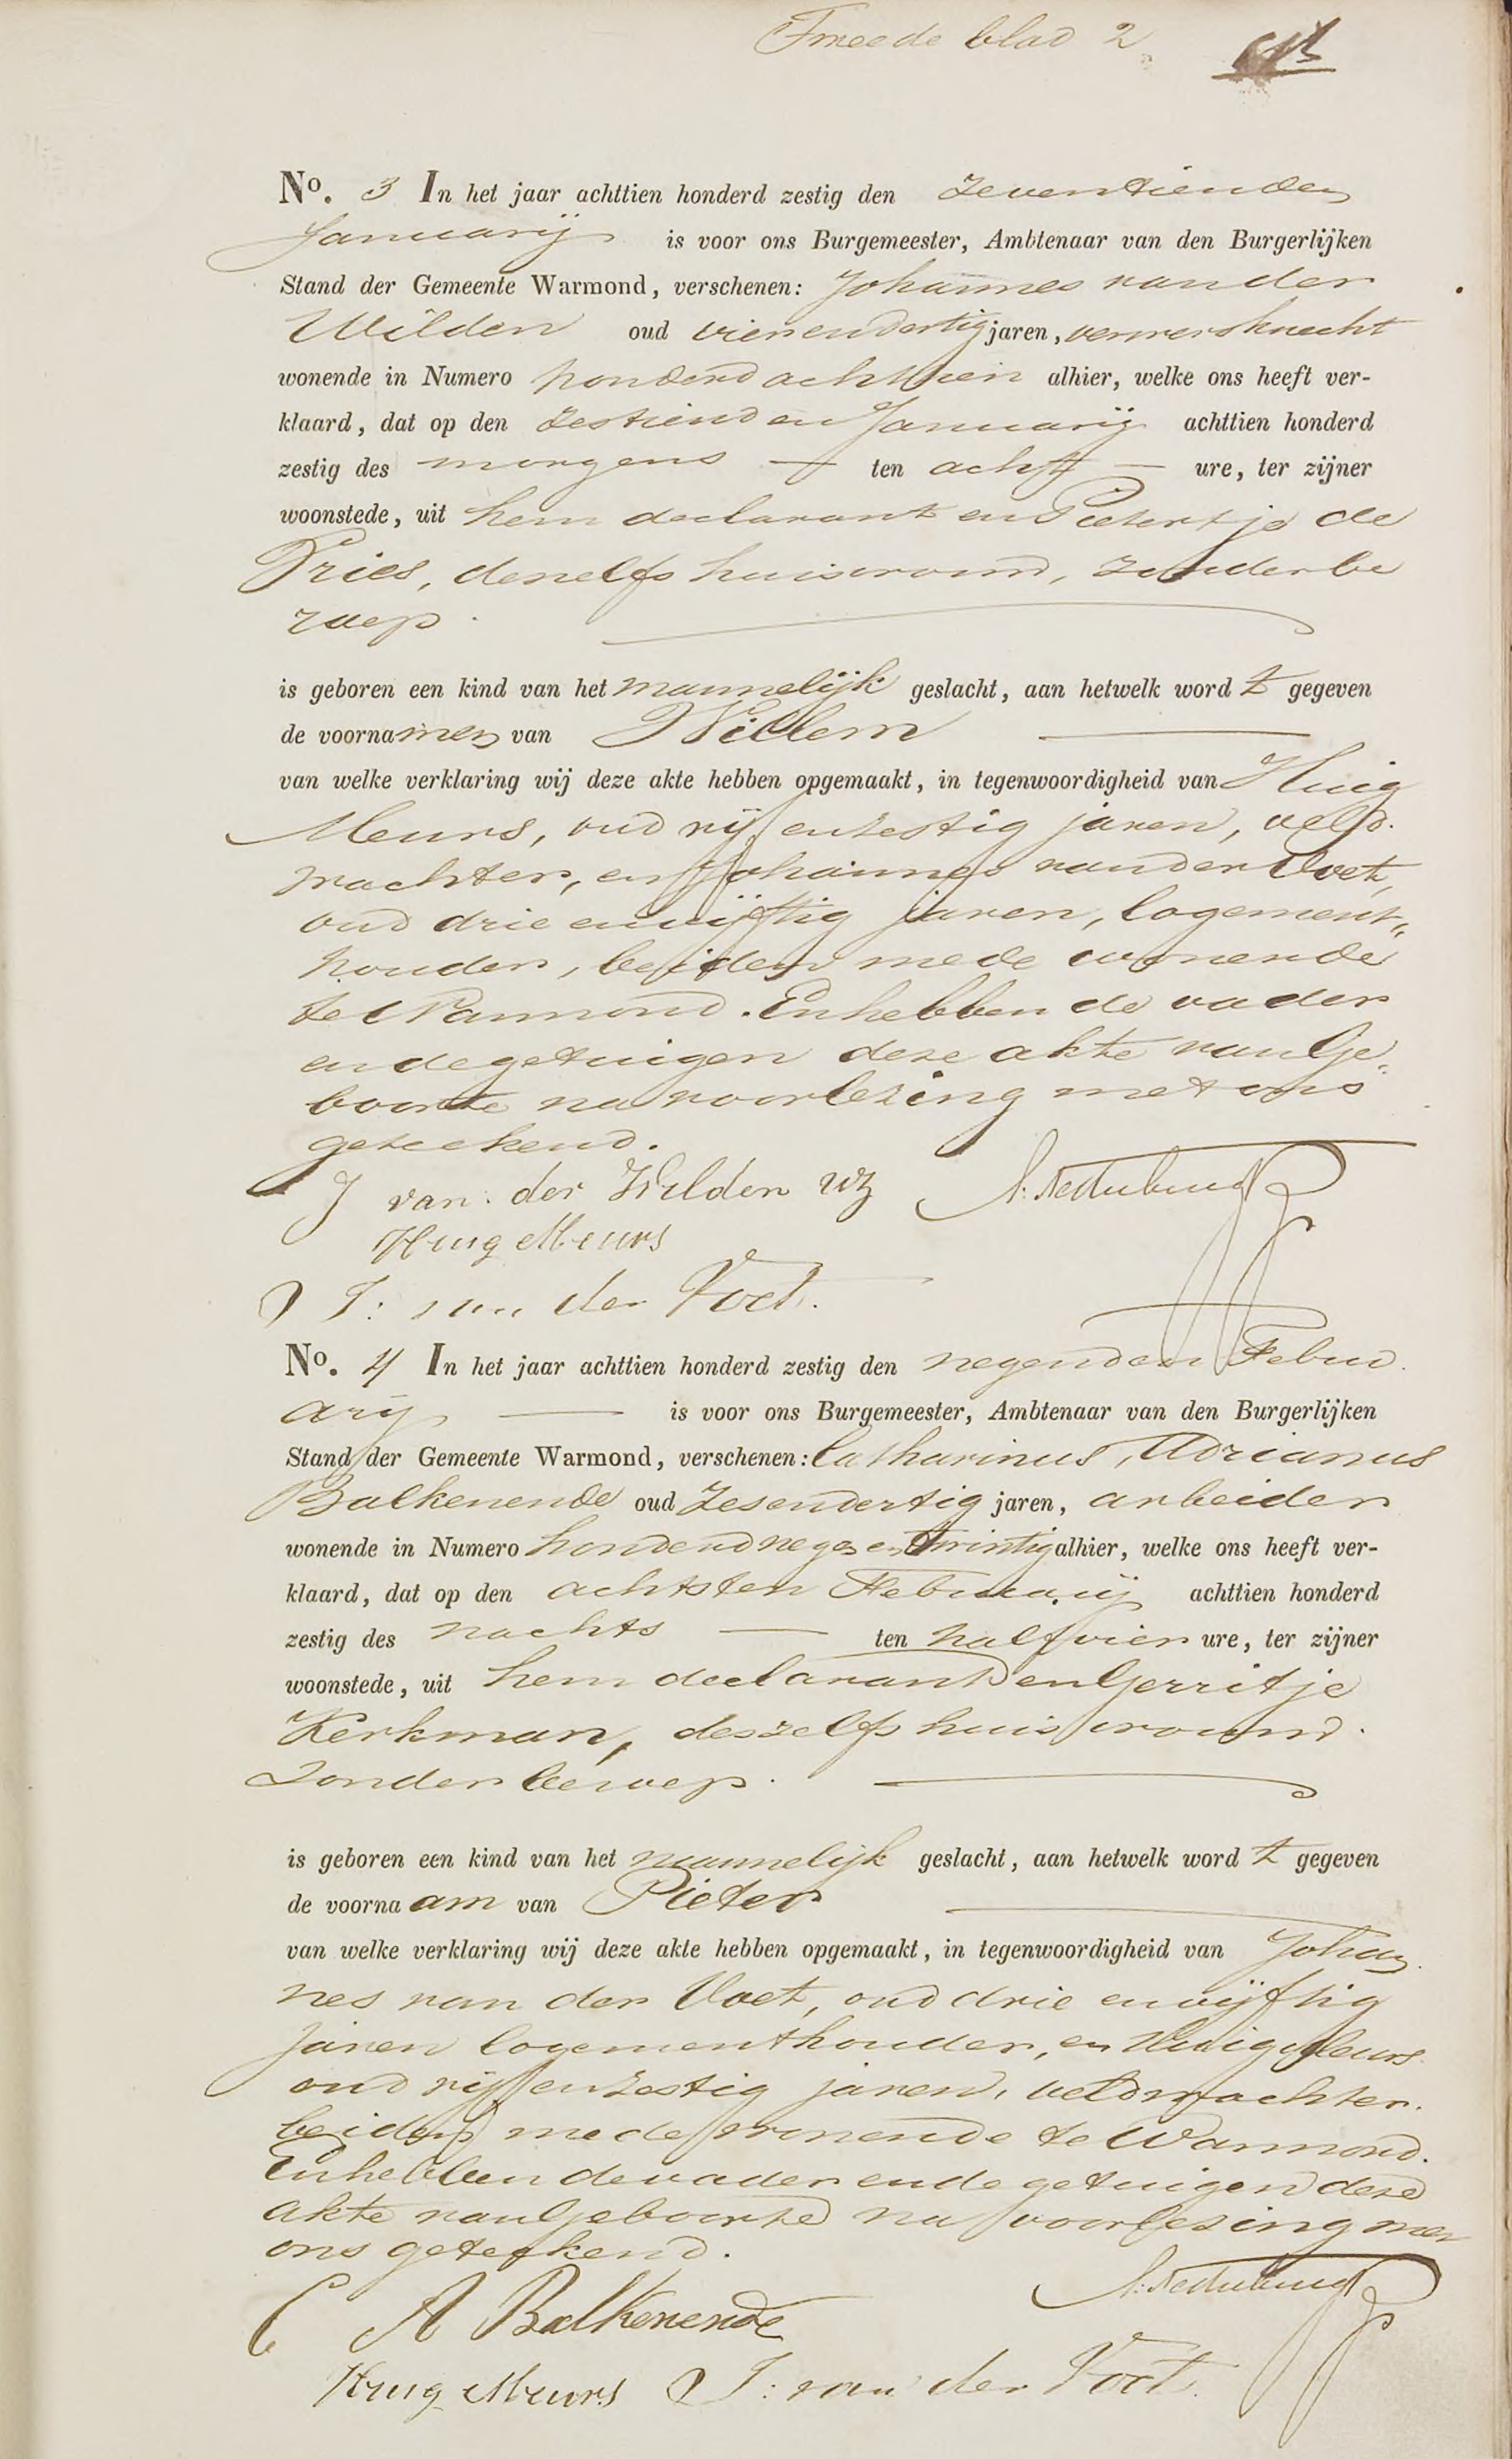 Tweede blad 2
No. 3 In het jaar achttien honderd zestig den zeventienden
Januarij is voor ons Burgemeester, Ambtenaar van den Burgerlijken
Stand der Gemeente Warmond, verschenen: Johannes van der
Wilden oud vierendertig jaren, ververs knecht
wonende in Numero honderd achttien alhier, welke ons heeft ver-
klaard, dat op den zestienden Januarij achttien honderd
zestig des morgens — ten acht — ure, ter zijner
woonstede, uit hem declarant en Pietertje de
Vries, deszelfs huisvrouw, zonder be
roep.
is geboren een kind van het mannelijk geslacht, aan hetwelk word t gegeven
de voornamen van Willem
van welke verklaring wij deze akte hebben opgemaakt, in tegenwoordigheid van Huig
Meurs, oud vijf en zestig jaren, veld-
wachter, en Johannes van der Voet,
oud drie en vijftig jaren, logement-
houder, beiden mede wonende
te Warmond. En hebben de vader
en de getuigen deze akte van Ge-
boorte na voorlezing met ons
geteekend.
J van der Wilden Wz
Huig Meurs
J: van der Voet.
No. 4 In het jaar achttien honderd zestig den negenden Febru
arij — is voor ons Burgemeester, Ambtenaar van den Burgerlijken
Stand der Gemeente Warmond, verschenen: Catharinus, Adrianus
Balkenende oud zesendertig jaren, arbeider
wonende in Numero honderd negen en twintig alhier, welke ons heeft ver-
klaard, dat op den achtsten Februarij achttien honderd
zestig des nachts — ten half vier ure, ter zijner
woonstede, uit hem declarant en Gerritje
Kerkman, deszelfs huisvrouw.
zonder beroep.
is geboren een kind van het mannelijk geslacht, aan hetwelk word t gegeven
de voornaam van Pieter
van welke verklaring wij deze akte hebben opgemaakt, in tegenwoordigheid van Johan
nes van der Voet, oud drie en vijftig
jaren logementhouder, en Huig Meurs
oud vijf en zestig jaren, veldwachter.
beiden mede wonende te Warmond.
En hebben de vader en de getuigen deze
akte van Geboorte na voorlezing met
ons geteekend.
C A Balkenende
Huig Meurs J: van der Voet.